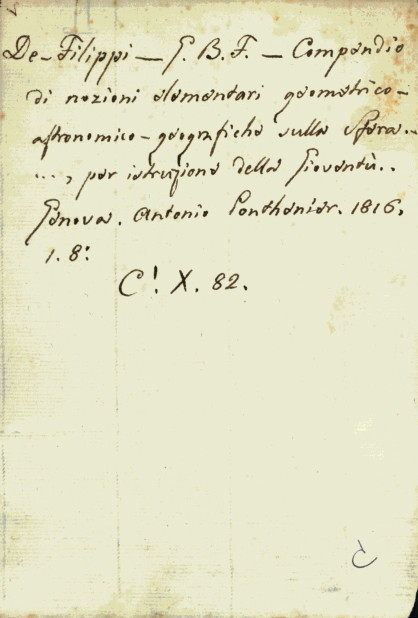 De-Filippi — G. B. F. — Compendio
di nozioni elementari geometrico-
astronomico-geografiche sulla Sfera...
..., per istruzione della Gioventù..
Genova. Antonio Ponthenier. 1816.
1. 8:
C! X. 82.